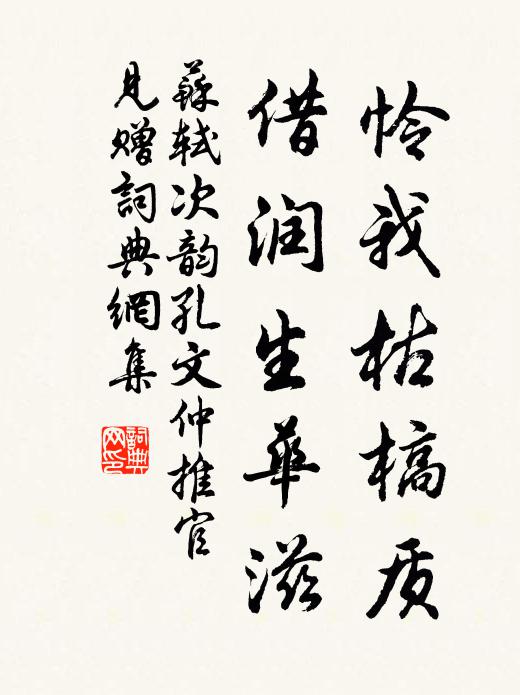 怜我枯槁质
借润生华滋
蘇轼次韵孔文仲推官
見赠詞典網集
詞典
网印